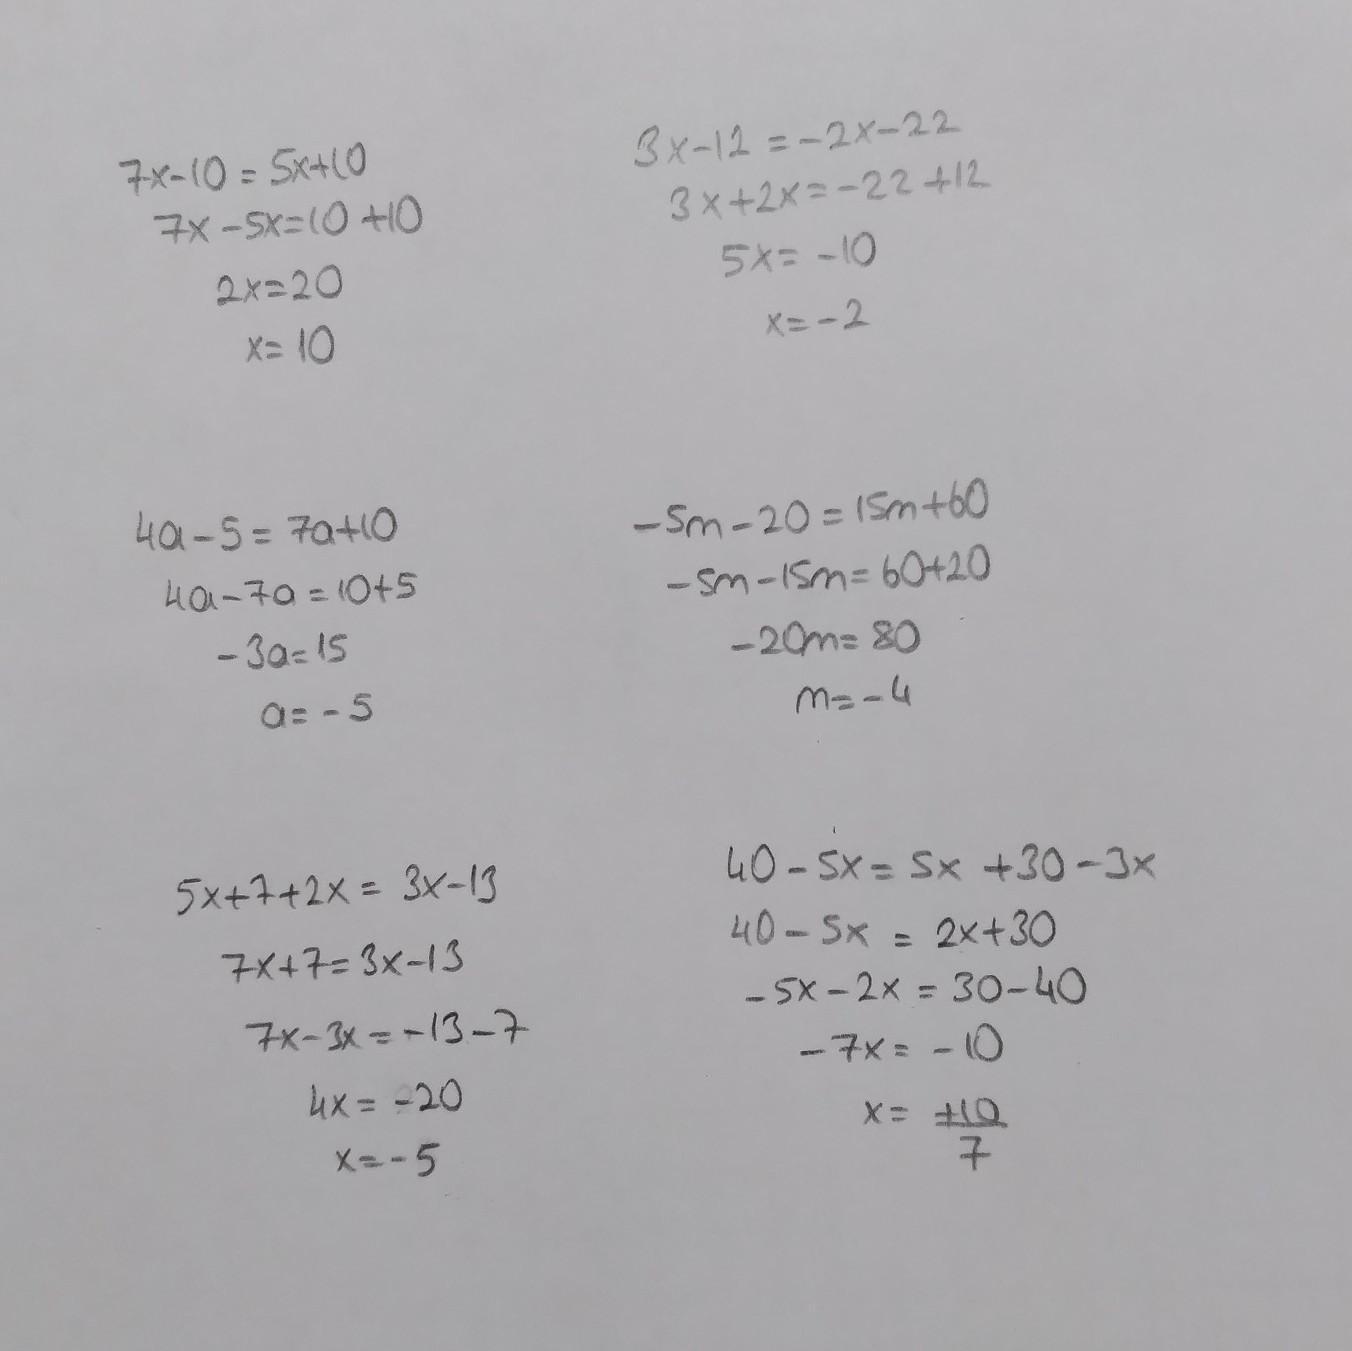 7x-10=5x+10
7x-5x=10+10
2x=20
x=10
3x-12=-2x-22
3x+2x=-22+12
5x=-10
x=-2
4a-5=7a+10
4a-7a=10+5
-3a=15
a=-5
-5m-20=15m+60
-5m-15m=60+20
-20m=80
m=-4
5x+7+2x=3x-13
7x+7=3x-13
7x-3x=-13-7
4x=-20
x=-5
40-5x=5x+30-3x
40-5x=2x+30
-5x-2x=30-40
-7x=-10
x=+10/7